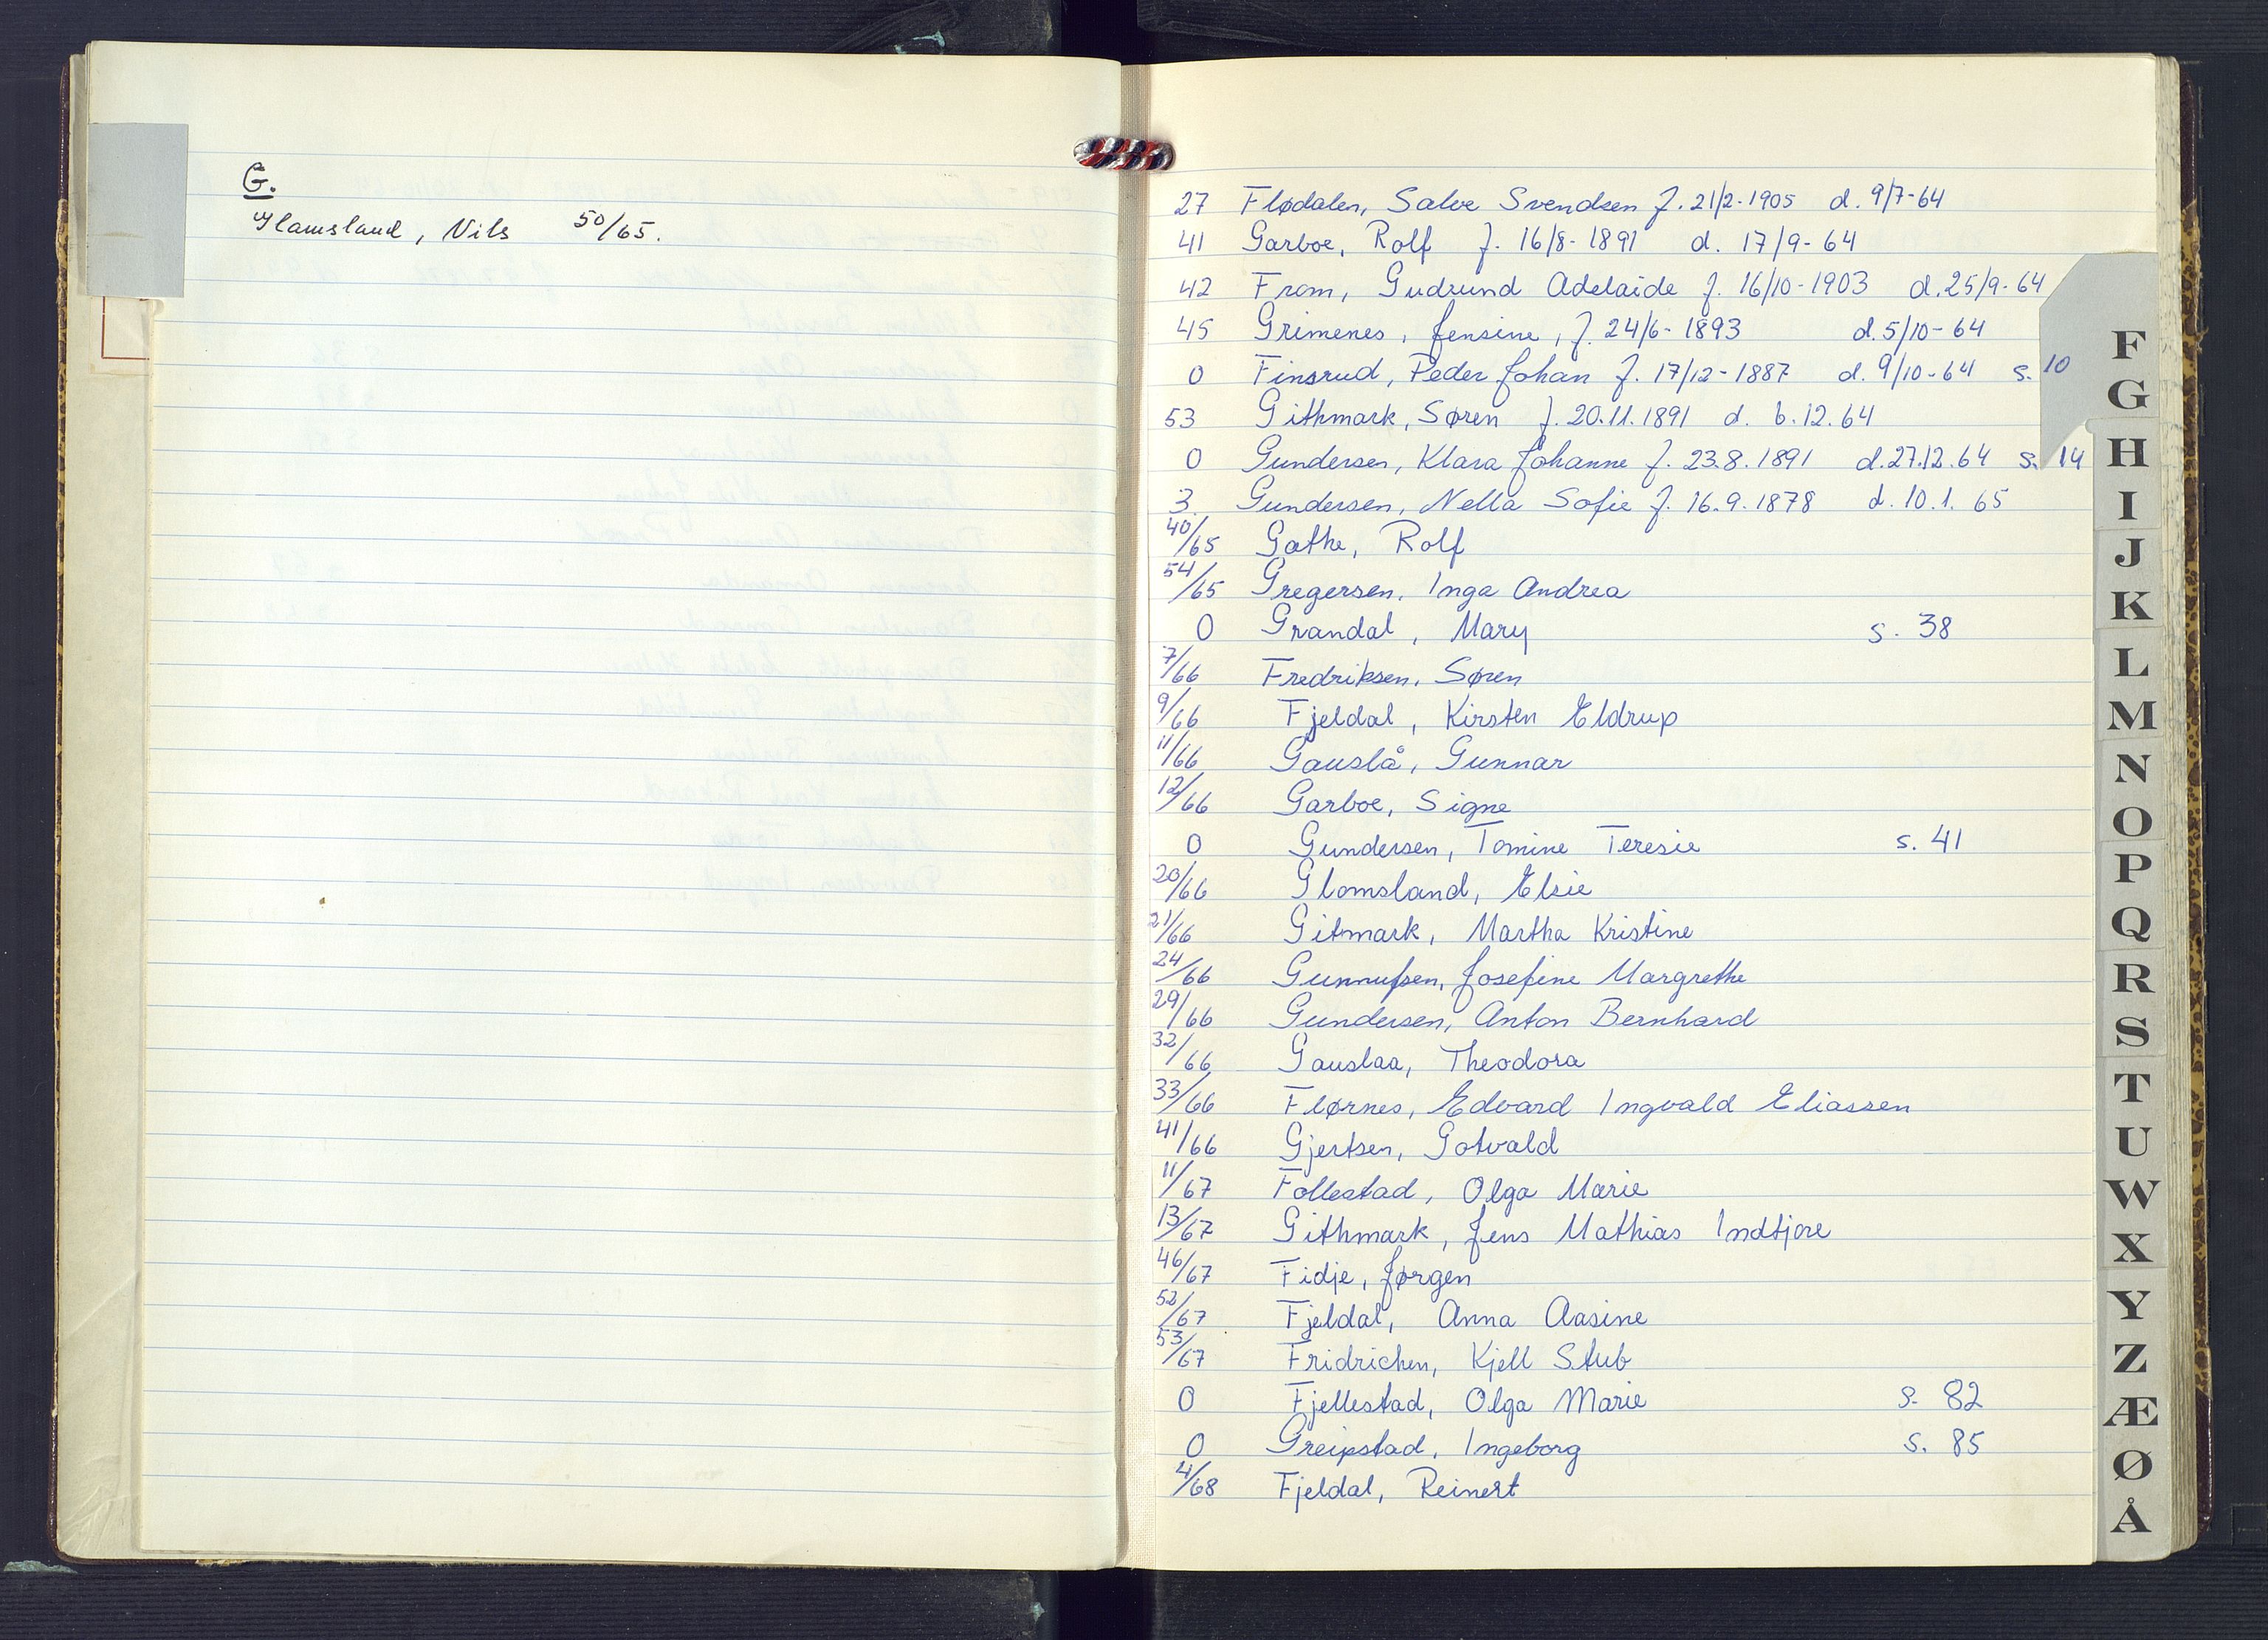 G.
Glamsland, Nils 50/65.
27 Flødalen, Salve Svendsen f. 21/2-1905 d. 9/7-64
41 Garboe, Rolf f. 16/8-1891 d. 17/9-64
42 From, Gudrund Adelaide f. 16/10-1903 d. 25/9-64
45 Grimenes, Jensine, f. 24/6-1893 d. 5/10-64
0 Finsrud, Peder Johan f. 17/12-1887 d. 9/10-64 s. 10
53 Githmark, Søren f. 20.11.1891 d. 6.12.64
0 Gundersen, Klara Johanne f. 23.8.1891 d. 27.12.64 s. 14
3. Gundersen, Nella Sofie f. 16.9.1878 d. 10.1.65
40/65 Gathe, Rolf
54/65 Gregersen, Inga Andrea
0 Grandal, Mary s. 38
7/66 Fredriksen, Søren
9/66 Fjeldal, Kirsten Eldrup
11/66 Gauslå, Gunnar
12/66 Garboe, Signe
0 Gundersen, Tomine Teresie s. 41
20/66 Glomsland, Elsie
21/66 Gitmark, Martha Kristine
24/66 Gunnufsen, Josefine Margrethe
29/66 Gundersen, Anton Bernhard
32/66 Gauslaa, Theodora
33/66 Flørnes, Edvard Ingvald Eliassen
41/66 Gjertsen, Gotvald
11/67 Follestad, Olga Marie
13/67 Githmark, Jens Mathias Indtjore
46/67 Fidje, Jørgen
52/67 Fjeldal, Anna Aasine
53/67 Fridrichen, Kjell Stub
0 Fjellestad, Olga Marie s. 82
0 Greipstad, Ingeborg s. 85
4/68 Fjeldal, Reinert
F
G
H
I
J
K
L
M
N
O
P
Q
R
S
T
U
W
X
Y
Z
Æ
Ø
Å